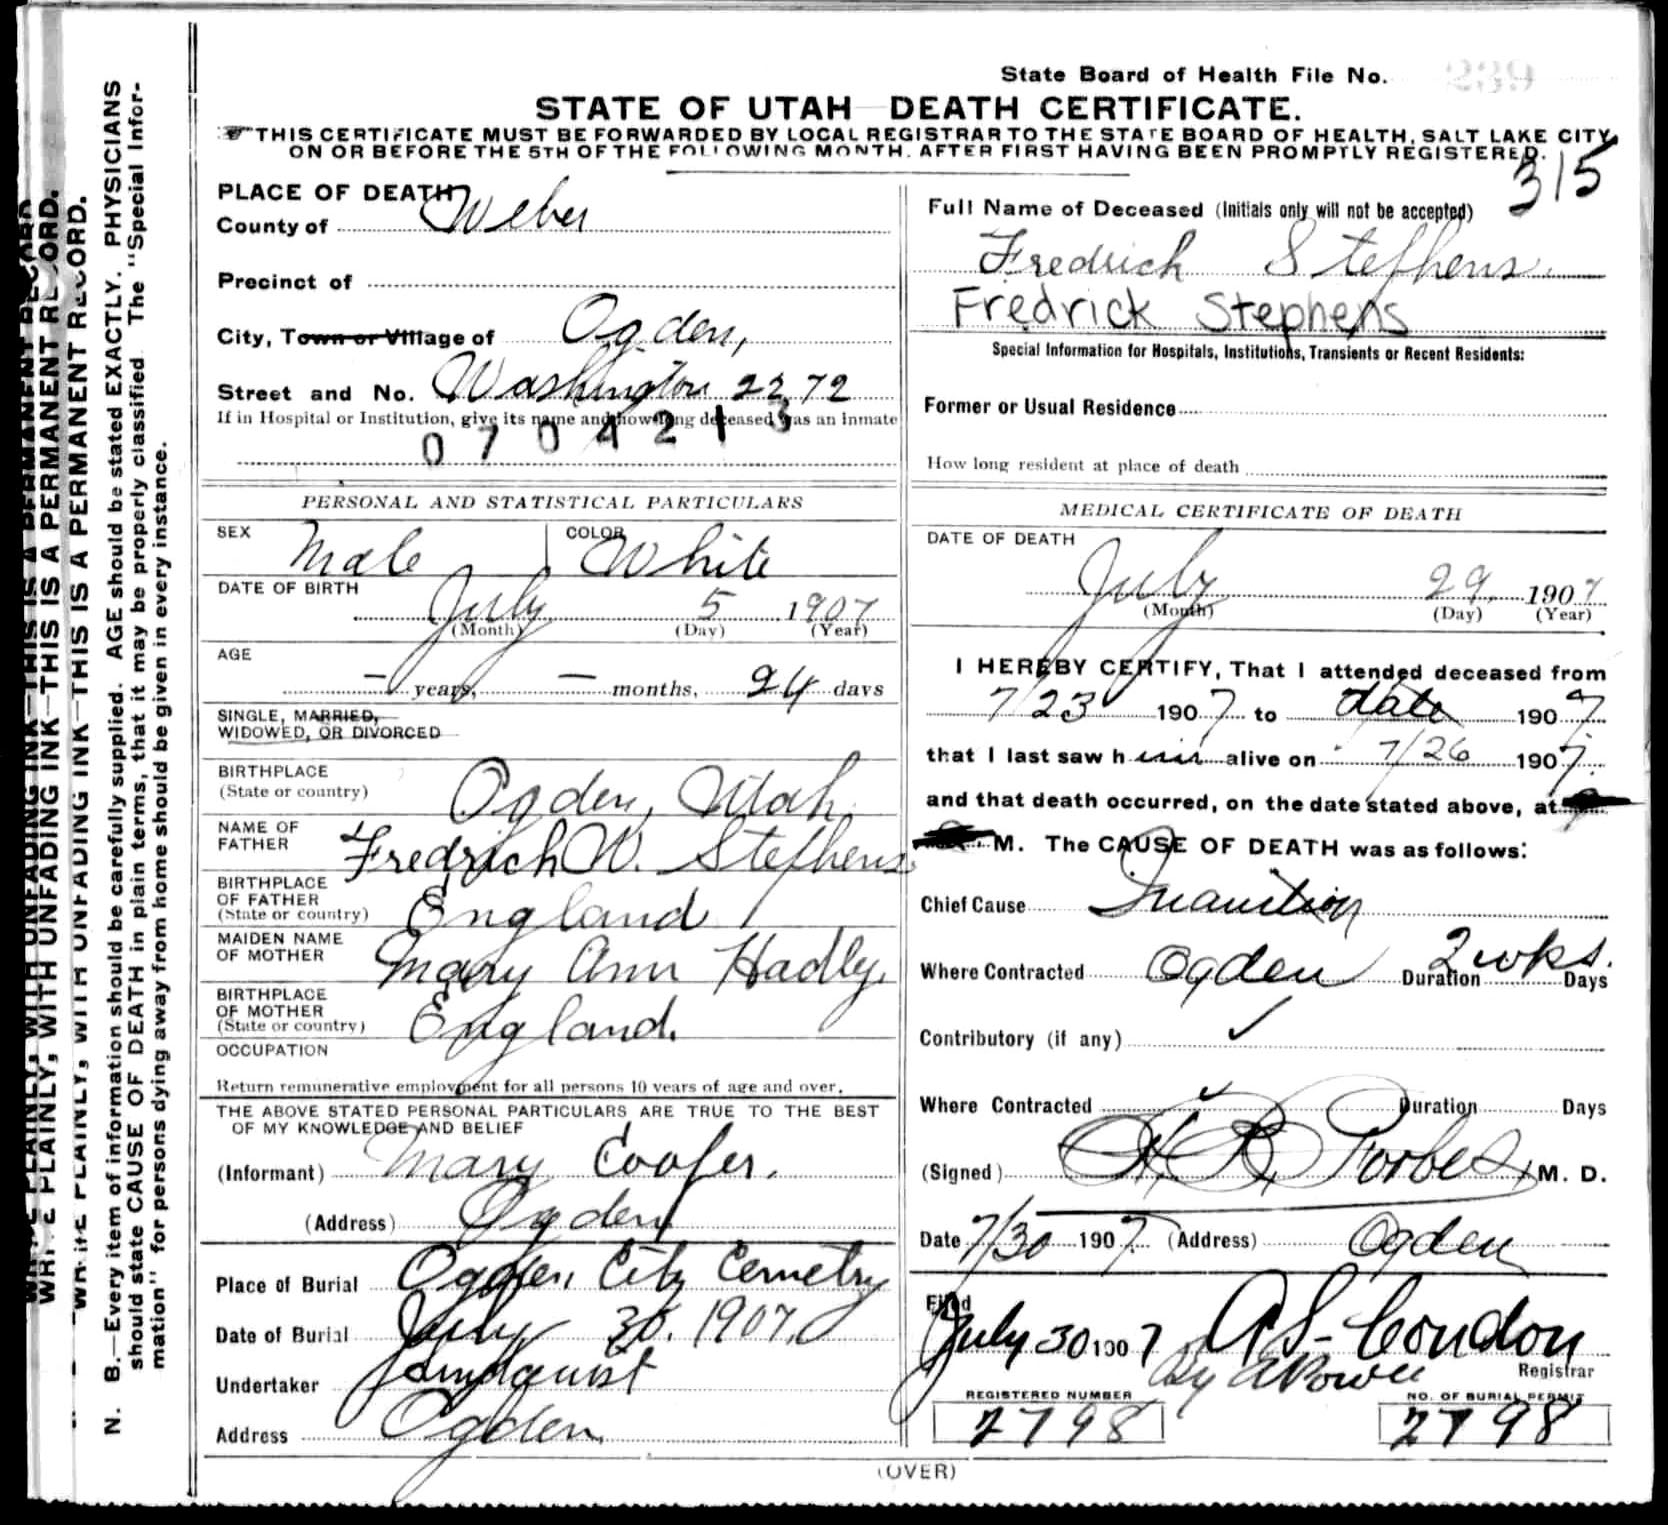 State Board of Health File No. 239
STATE OF UTAH—DEATH CERTIFICATE.
THIS CERTIFICATE MUST BE FORWARDED BY LOCAL REGISTRAR TO THE STATE BOARD OF HEALTH, SALT LAKE CITY,
ON OR BEFORE THE 5TH OF THE FOLLOWING MONTH. AFTER FIRST HAVING BEEN PROMPTLY REGISTERED.
315
PLACE OF DEATH
County of Weber
Precinct of
City, Town or Village of Ogden,
Street and No. Washington 2272
If in Hospital or Institution, give its name and how long deceased was an inmate
0704213
PERSONAL AND STATISTICAL PARTICULARS
SEX Male COLOR White
DATE OF BIRTH
July 5 1907
(Month) (Day) (Year)
AGE
— years, — months, 24 days
SINGLE, MARRIED,
WIDOWED, OR DIVORCED
BIRTHPLACE
(State or country) Ogden, Utah
NAME OF
FATHER Fredrich W. Stephens
BIRTHPLACE
OF FATHER
(State or country) England
MAIDEN NAME
OF MOTHER Mary Ann Hadly.
BIRTHPLACE
OF MOTHER
(State or country) England.
OCCUPATION
Return remunerative employment for all persons 10 years of age and over.
THE ABOVE STATED PERSONAL PARTICULARS ARE TRUE TO THE BEST
OF MY KNOWLEDGE AND BELIEF
(Informant) Mary Cooper.
(Address) Ogden
Place of Burial Ogden City Cemetry
Date of Burial July 30. 1907.
Undertaker Lindquist
Address Ogden
Full Name of Deceased (Initials only will not be accepted)
Fredrich Stephens.
Fredrick Stephens
Special Information for Hospitals, Institutions, Transients or Recent Residents:
Former or Usual Residence
How long resident at place of death
MEDICAL CERTIFICATE OF DEATH
DATE OF DEATH
July 29, 1907
(Month) (Day) (Year)
I HEREBY CERTIFY, That I attended deceased from
7/23 1907 to date 1907
that I last saw him alive on 7/26 1907.
and that death occurred, on the date stated above, at
M. The CAUSE OF DEATH was as follows:
Chief Cause Inanition
Where Contracted Ogden Duration 2 wks. Days
Contributory (if any)
Where Contracted Duration Days
(Signed) H B Forbes, M. D.
Date 7/30 1907. (Address) Ogden
Filed
July 30 1907 A S Condon
By Registrar
REGISTERED NUMBER NO. OF BURIAL PERMIT
2798 2798
(OVER)
WRITE PLAINLY, WITH UNFADING INK—THIS IS A PERMANENT RECORD.
WRITE PLAINLY, WITH UNFADING INK—THIS IS A PERMANENT RECORD.
WRITE PLAINLY, WITH UNFADING INK—THIS IS A PERMANENT RECORD.
N. B.—Every item of information should be carefully supplied. AGE should be stated EXACTLY. PHYSICIANS
should state CAUSE OF DEATH in plain terms, that it may be properly classified. The "Special Infor-
mation" for persons dying away from home should be given in every instance.